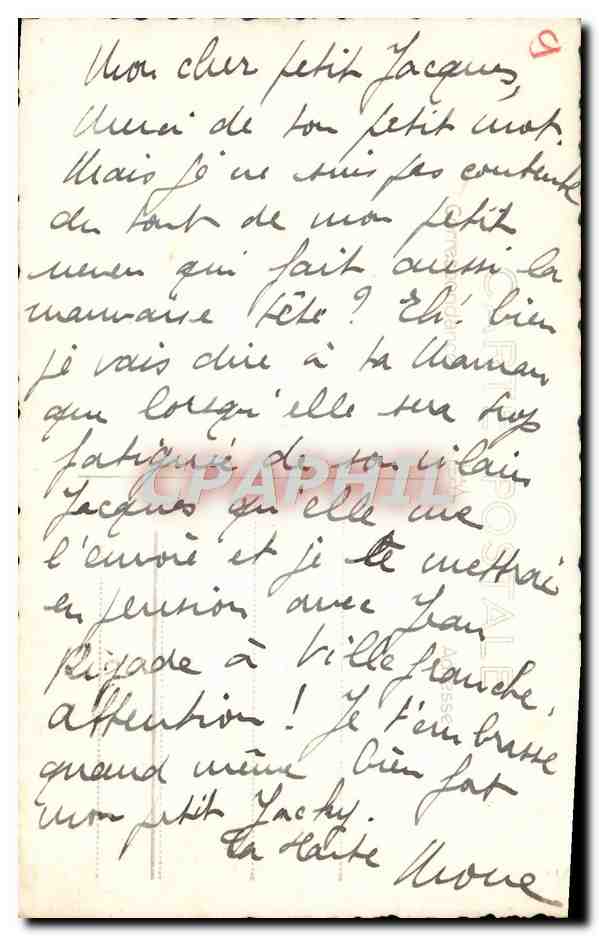 Mon cher petit Jacques,
Merci de ton petit mot.
Mais je ne suis pas contente
du tout de mon petit
neveu qui fait aussi la
mauvaise tête ? Eh! bien
je vais dire à ta Maman
que lorsqu'elle sera trop
fatiguée de son vilain
Jacques qu'elle me
l'envoie et je le mettrai
en pension avec Jean
Rigade à Villefranche,
attention ! Je t'embrasse
quand même bien fort
mon petit Jacky.
ta
CPAPHIL
CARTE POSTALE
Correspondance
Adresse